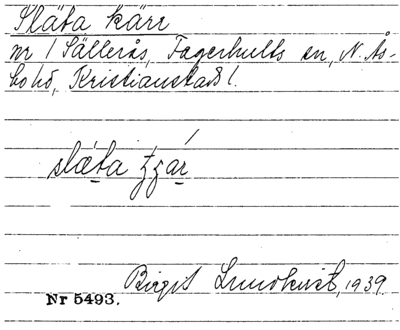 Släta kärr
nr 1 Sällerås, Fagerhults sn, N. Ås-
bo hd, Kristianstads l.
slæta
Birgit Lundkvist, 1939.
Nr 5493.